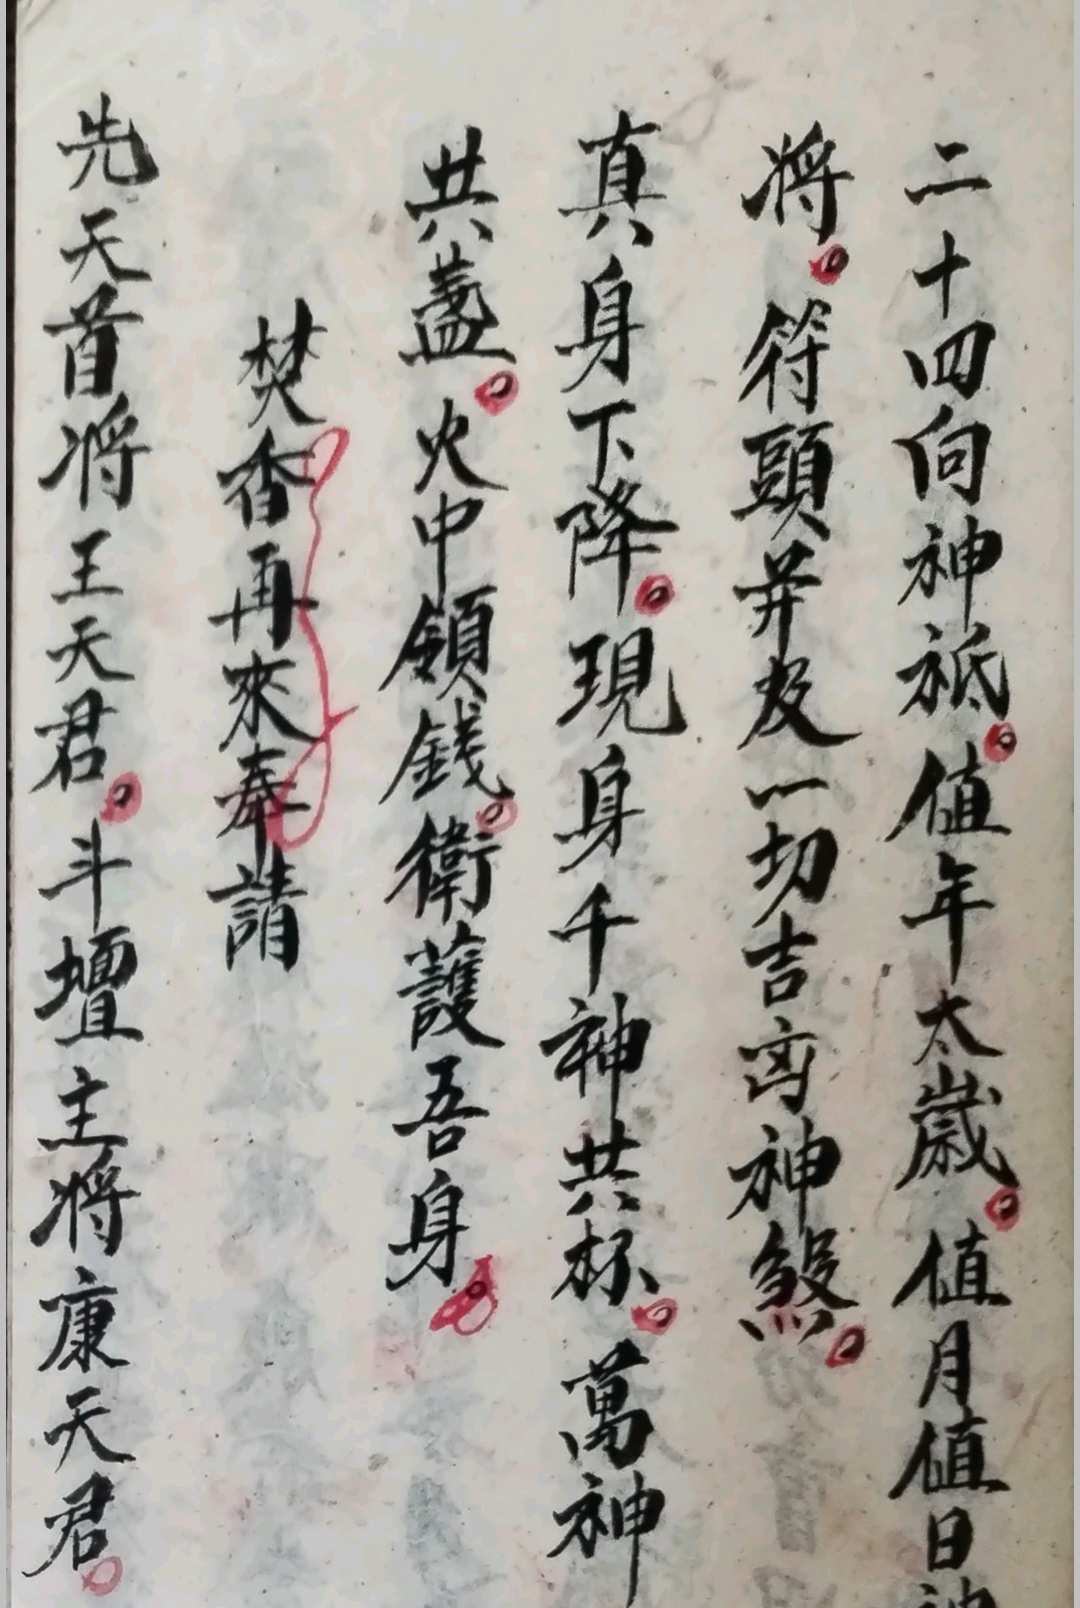 二十四向神祇。值年太歲。值月值日神
將。符頭并及一切吉凶神煞。
真身下降。現身千神共杯。萬神
共盞。火中領錢。衛護吾身。
焚香再來奉請
先天首將王天君。斗壇主將康天君。